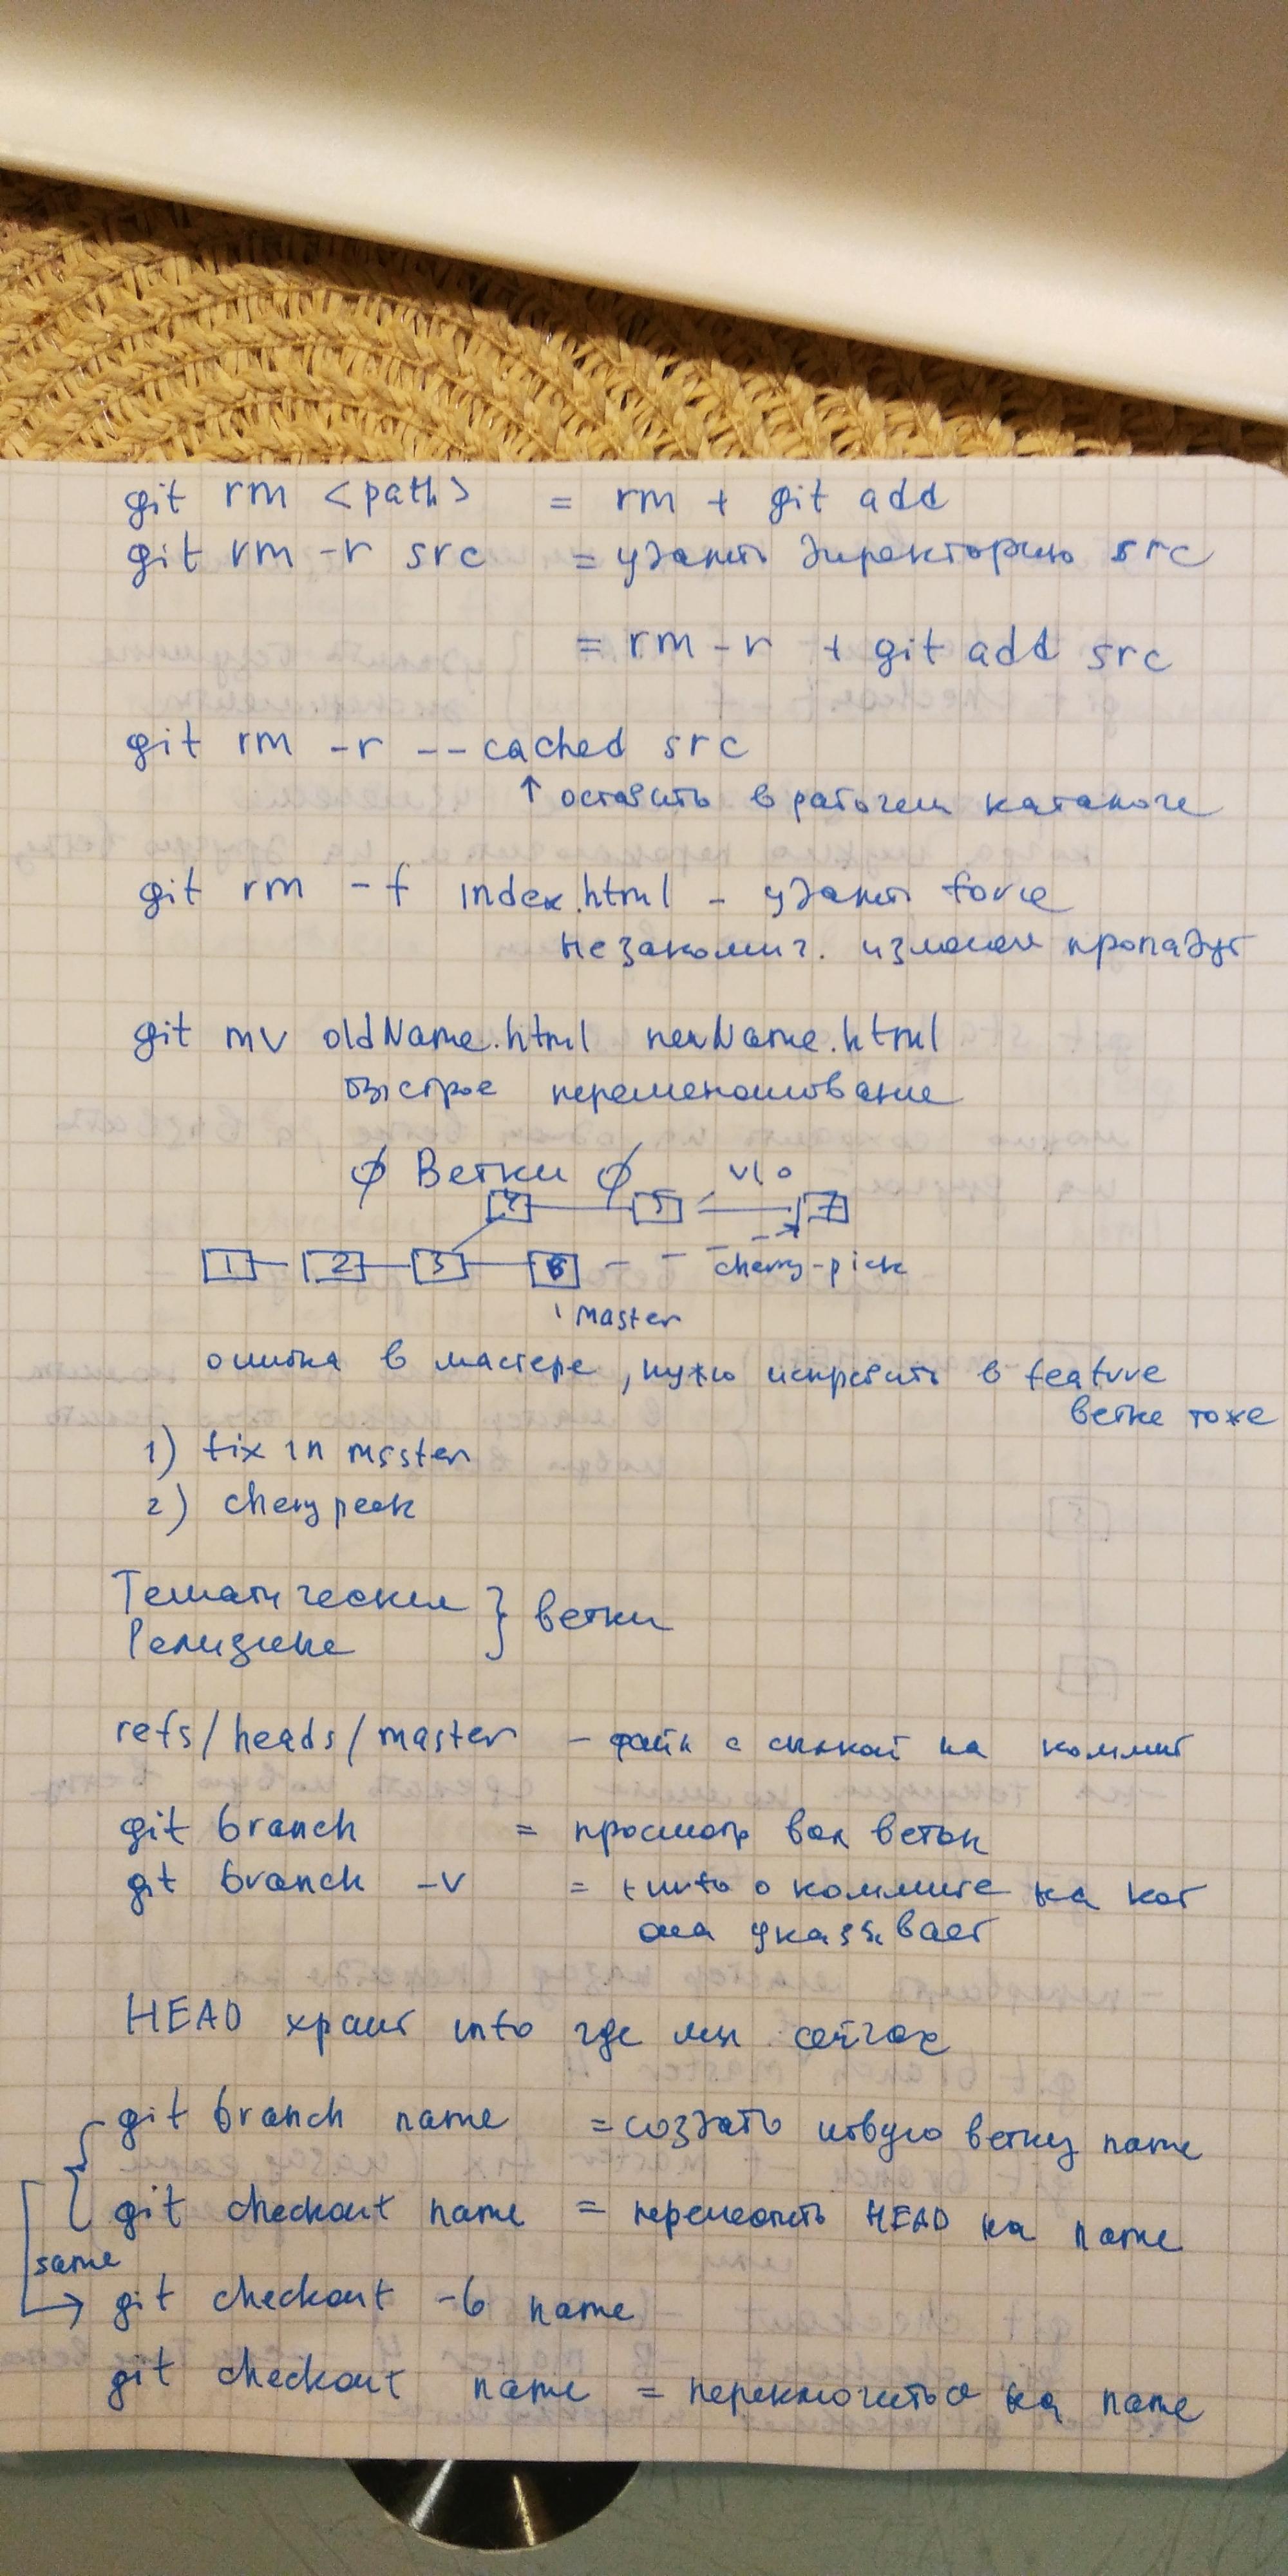 git rm <path> = rm + git add
git rm -r src = удалить директорию src
= rm -r + git add src
git rm -r --cached src
↑ оставить в рабочем каталоге
git rm -f index.html - удалить force
незакомич. изменен пропадут
git mv oldName.html newName.html
быстрое переименование
∅ Ветки ∅
4 5 7
1 2 3 6 cherry-pick
master
ошибка в мастере, нужно исправить в feature
ветке тоже
1) fix in master
2) chery peek
Тематические } ветки
Релизные
refs/heads/master - файл с сылкой на коммит
git branch = просмотр всех веток
git branch -v = + инфо о коммите на кот
она указывает
HEAD хранит info где мы сейчас
git branch name = создать новую ветку name
git checkout name = переместить HEAD на name
same
git checkout -b name
git checkout name = переключиться на name